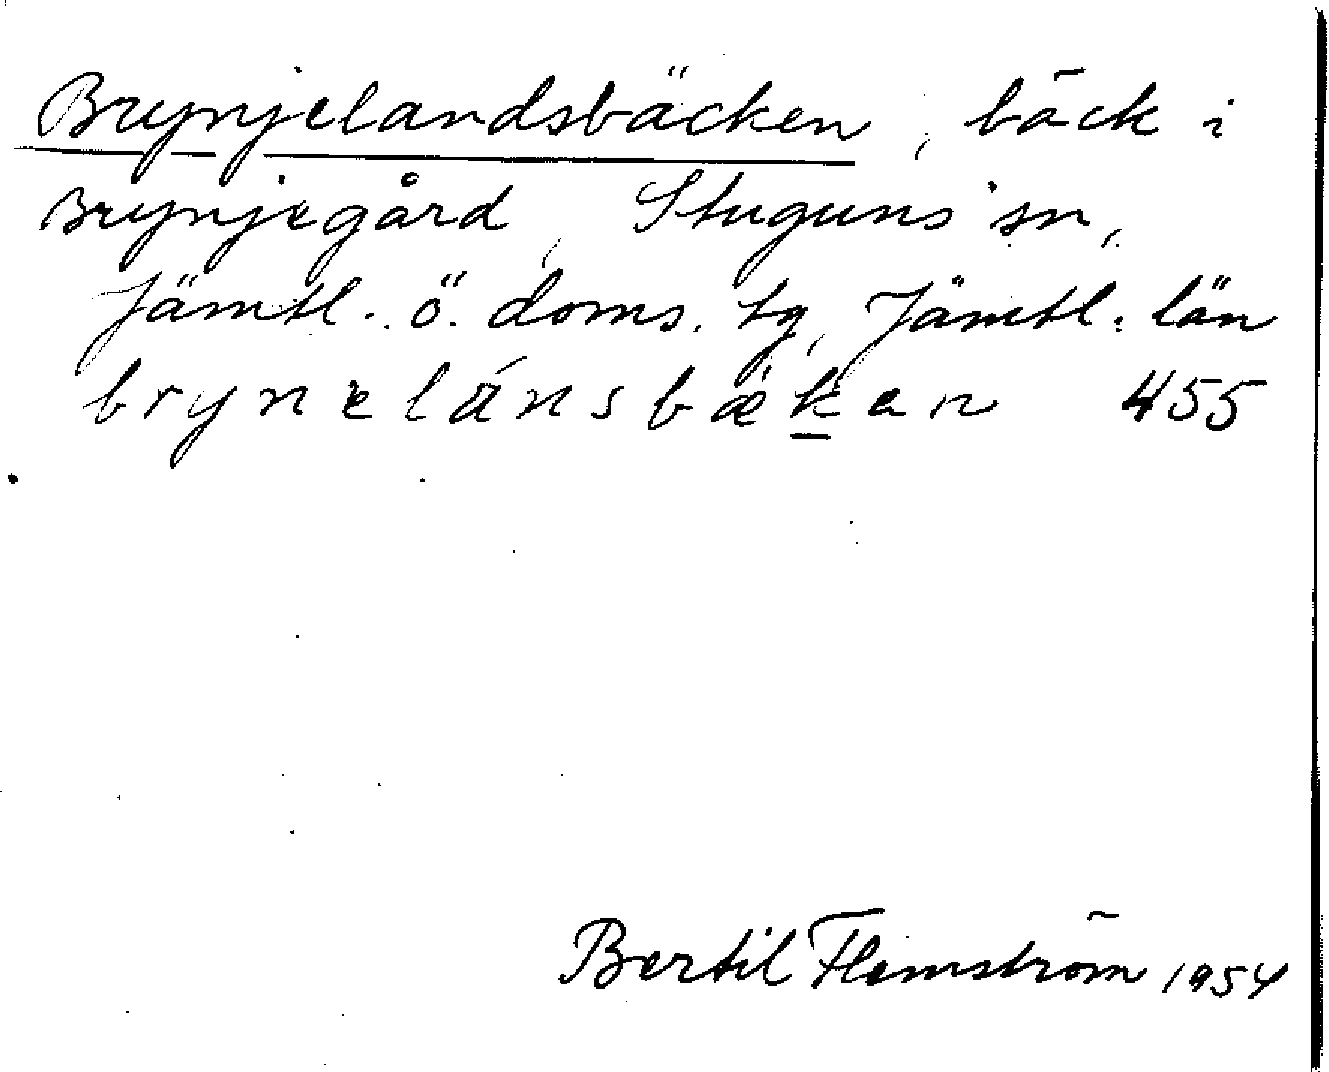 Brynjelandsbäcken, bäck i
Brynjegård, Stuguns sn,
Jämtl. ö. doms. tg, Jämtl. län
brynelánsbæken 455
Bertil Flemström 1954